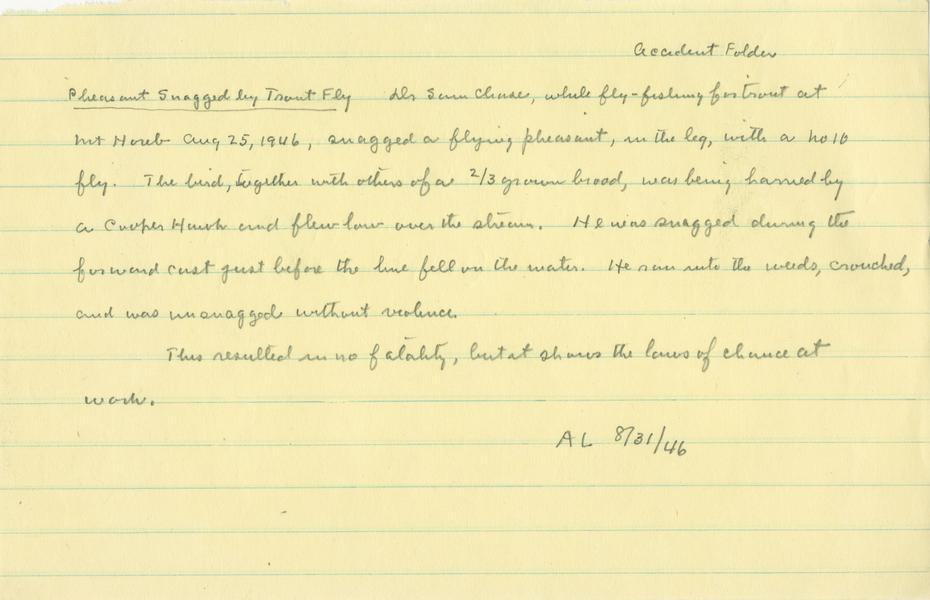 Accident Folder
Pheasant Snagged by Trout Fly Dr Sam Chase, while fly-fishing for trout at
Mt Horeb Aug 25, 1946, snagged a flying pheasant, in the leg, with a no 10
fly. The bird, together with others of a 2/3 grown brood, was being harried by
a Cooper Hawk and flew low over the stream. He was snagged during the
forward cast just before the line fell on the water. He ran into the weeds, crouched,
and was unsnagged without violence.
This resulted in no fatality, but it shows the laws of chance at
work.
AL 8/31/46